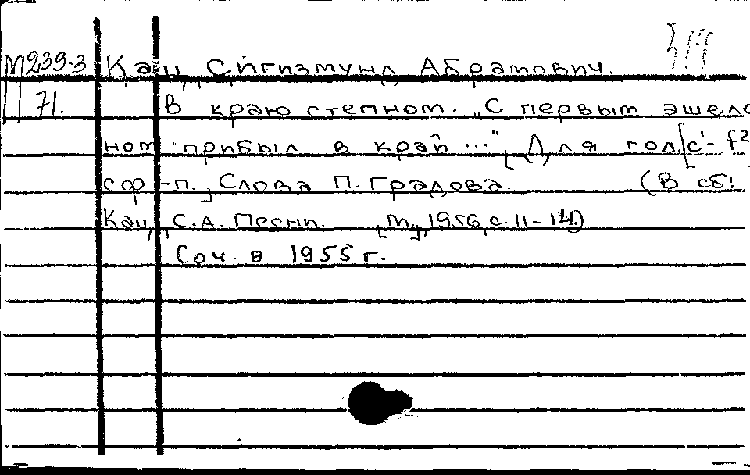 М239-3 Кац, Сигизмунд Абрамович.
71. В краю степном. „С первым эшело
ном прибыл в край ..." Для гол. [c'- f²
с ф-п. Слова П. Градова. (В сб:
Кац, С.А. Песни. М., 1956, с. 11-14)
Соч. в 1955 г.